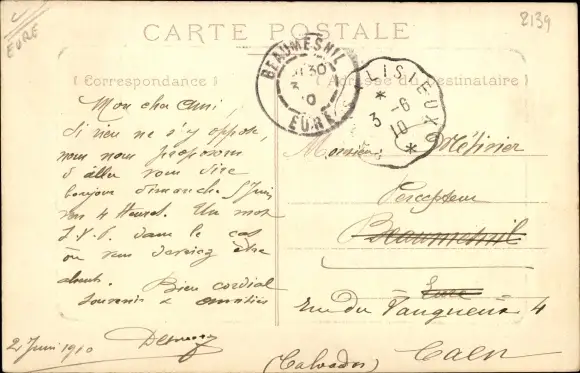 EURE
2139
CARTE POSTALE
Correspondance
Adresse du Destinataire
BEAUMESNIL
EURE
LISIEUX
3-6
10
Mon cher ami,
Si rien ne s'y oppose,
nous nous proposons
d'aller vous dire
bonjour dimanche 5 Juin
vers 4 heures. Un mot
S.V.P. dans le cas
où vous devriez être
absents. Bien cordial
souvenir & amitiés
2 Juin 1910
Monsieur Métivier
Percepteur
Beaumesnil
Eure
rue du Vaugueux 4
(Calvados) Caen